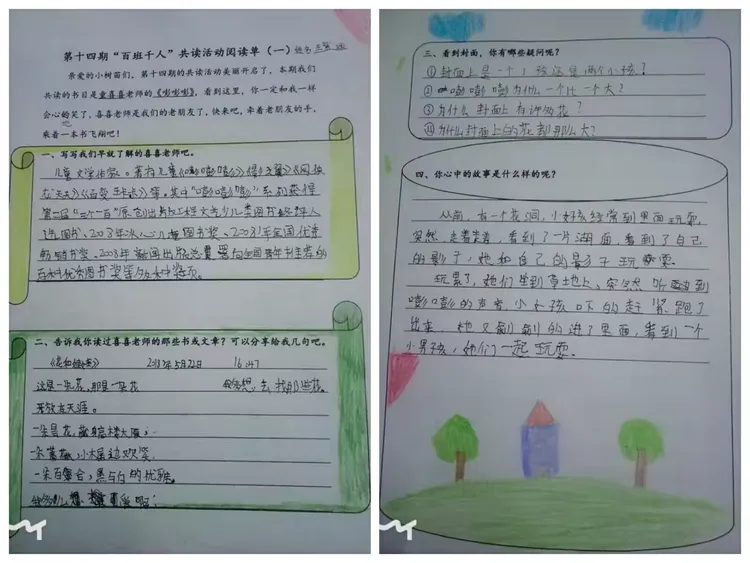 第十四期“百班千人”共读活动阅读单（一）
亲爱的小树苗们，第十四期的共读活动美丽开启了，本期我们
共读的书目是童喜喜老师的《嘭嘭嘭》，看到这里，你一定和我一样
会心的笑了，喜喜老师是我们的老朋友了，快来吧，牵着老朋友的手，
乘着一本书飞翔吧！
一、写写我们早就了解的喜喜老师吧。
儿童文学作家。著有儿童《嘭嘭嘭》《
》《百变王卡卡》等。其中“嘭嘭嘭”系列获得
第二届“三个一百”原创出版工程文艺少儿类图书
图书、2003年冰心儿童图书奖、2003年全国优秀
畅销书奖、2003年新闻出版总署向全国青少年推荐的
百种优秀图书奖等
二、告诉我你读过喜喜老师的那些书或文章？可以分享给我几句吧。
2013年5月22日 16:47
这是一朵花，那是一朵花 去找那些花。
开放在天涯。
一朵昙花，
一朵蔷薇，小木屋边欢笑。
一朵百合，黑与白的优雅。
三、看到封面，你有哪些疑问呢？
①封面上是一个小孩还是两个小孩？
②嘭嘭嘭为什么一个比一个大？
③为什么封面上有许多花？
④为什么封面上的花都那么大？
四、你心中的故事是什么样的呢？
从前，有一个花洞，小女孩经常到里面玩耍，
突然，走着走着，看到了一片湖面，看到了自己
的影子，她和自己的影子玩耍。
玩累了，她们坐到草地上，突然听到
嘭嘭的声音，小女孩吓的赶紧跑了
出来，她又的进了里面，看到一个
小男孩，她们一起玩耍。